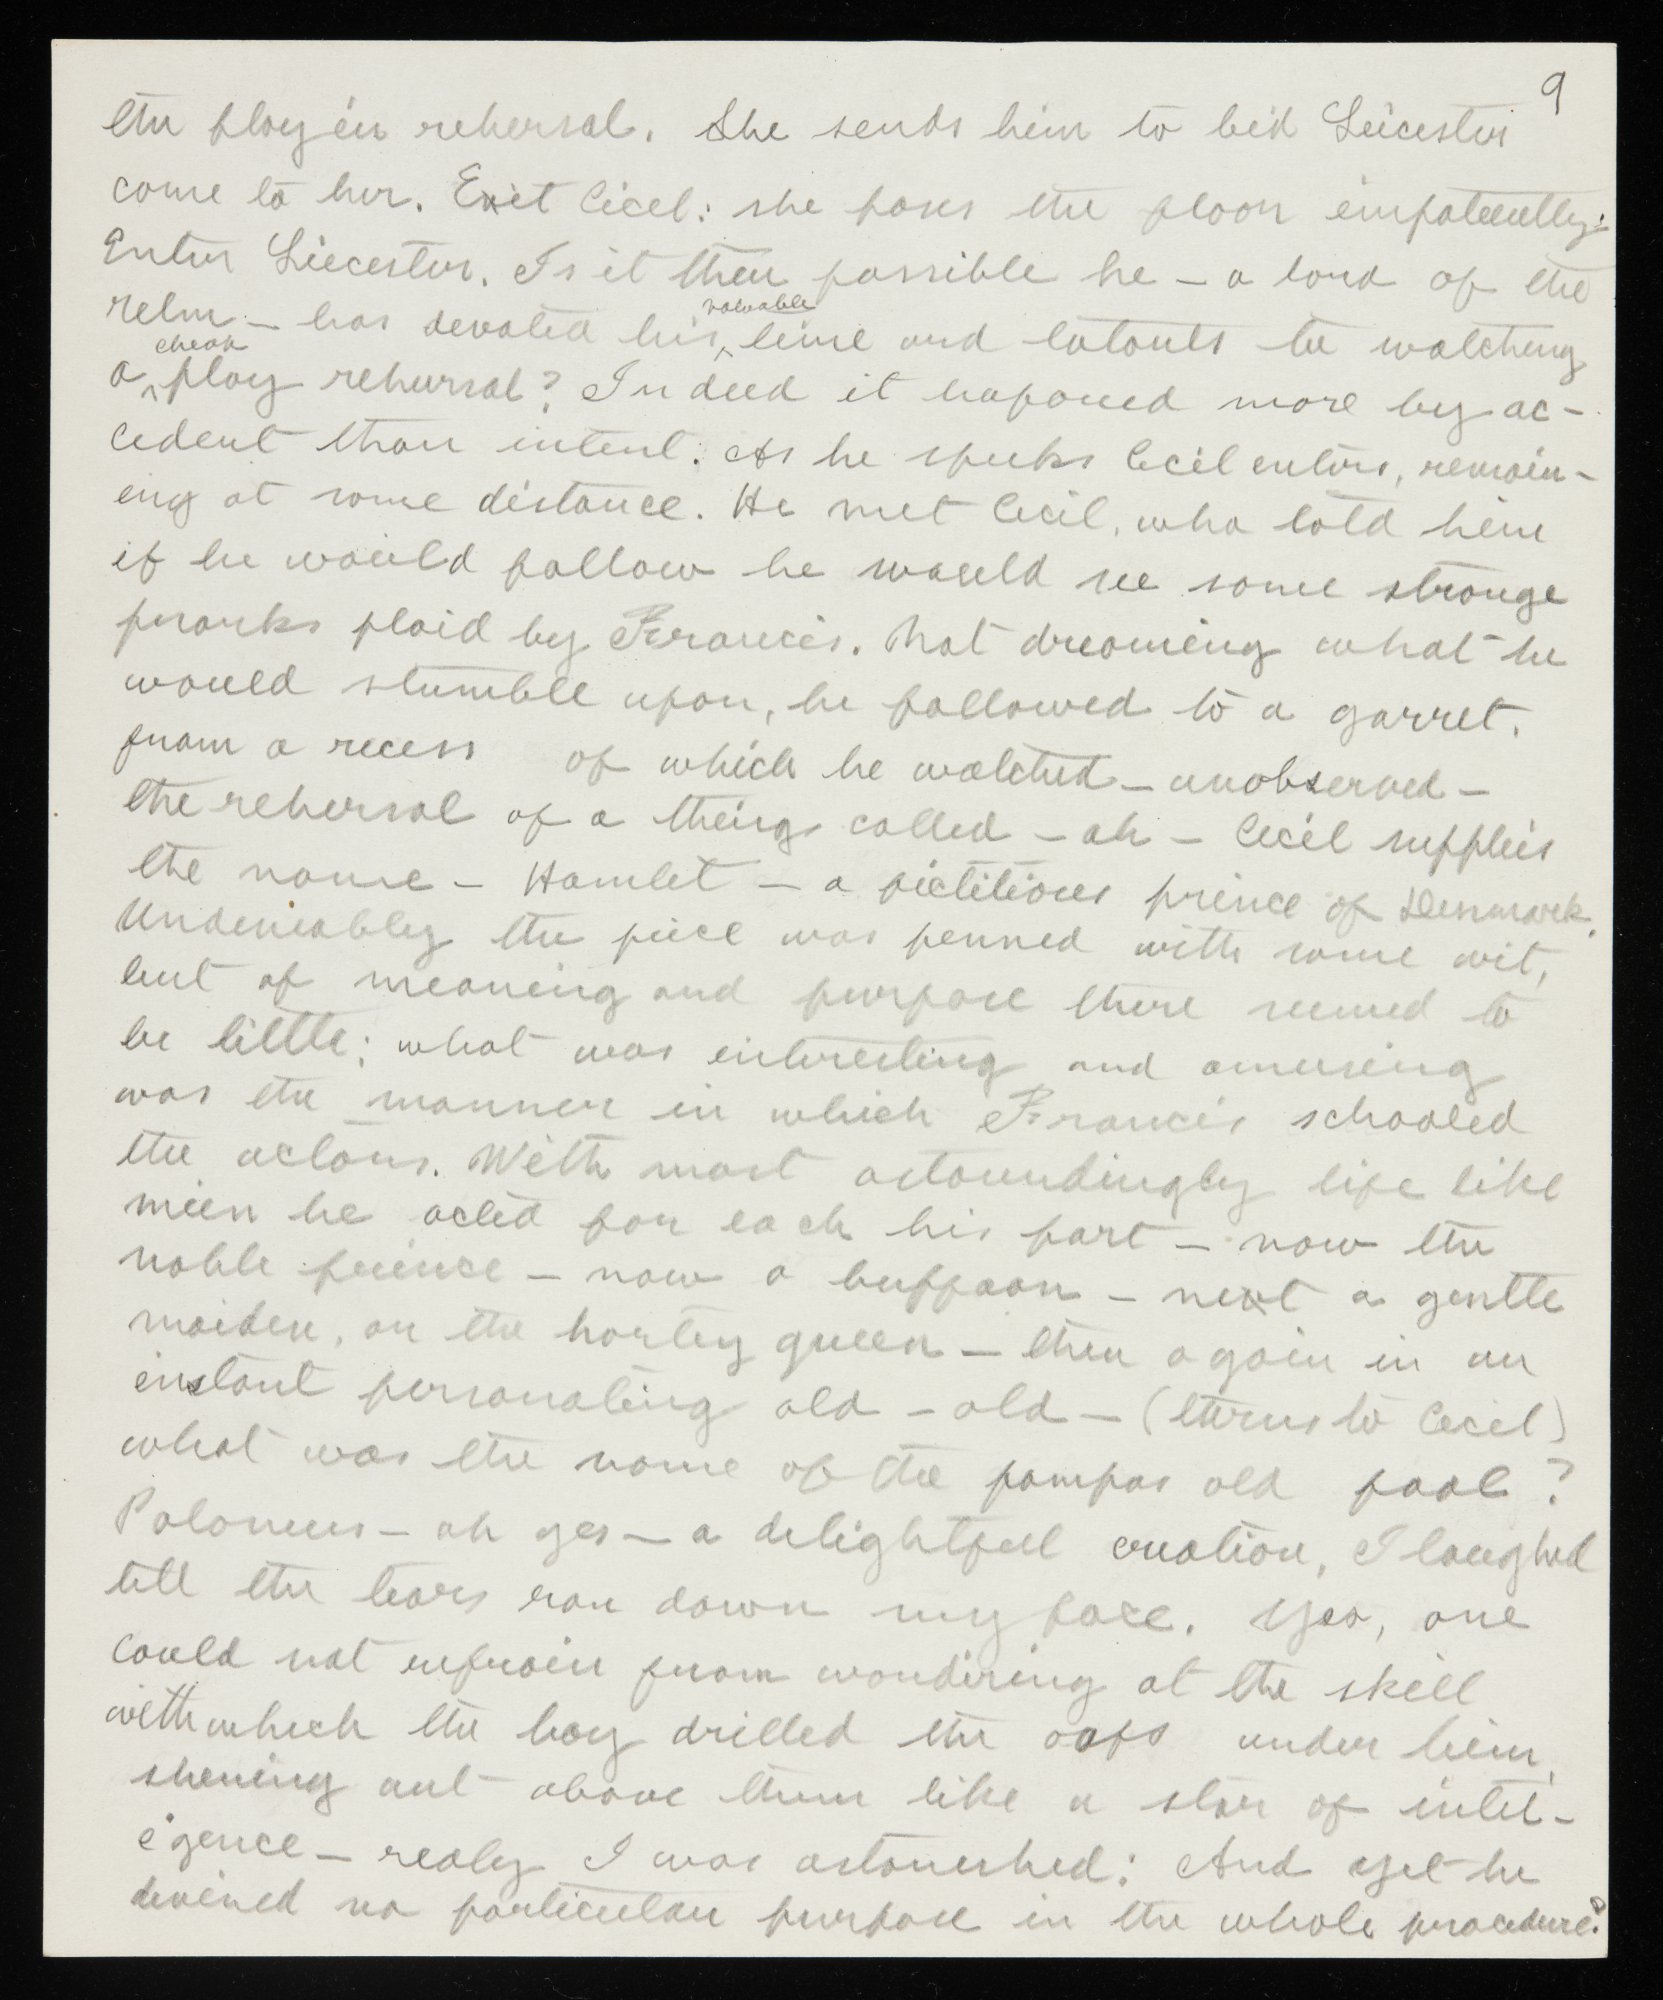 9
the play in rehersal. She sends him to bid Leicester
come to her. Exit Cicel: she pases the floor impatiently:
Enter Liecester. Is it then possible he – a lord of the
relm – has devoted his valuable time and talants to watching
a cheap play rehursal? Indeed it hapened more by ac-
cident than intent. As he speeks Cecil enters, remain-
ing at some distance. He met Cecil, who told him
if he would follow he would see some strange
pranks plaid by Francis. Not dreaming what he
would stumble upon, he followed to a garret.
from a recess of which he watched – unobserved –
the rehersal of a thing called – ah – Cecil supplies
the name – Hamlet – a fictitious prince of Denmark.
Undeniably the piece was penned with some wit,
but of meaning and purpose there seemed to
be little; what was interesting and amusing
was the manner in which Francis schooled
the actors. With most astoundingly life like
mien he acted for each his part – now the
noble prince – now a buffoon – next a gentle
maiden, or the horty queen – then again in an
instant personating old – old – (turns to Cecil)
what was the name of the pompas old fool?
Polonius – ah yes – a delightful creation, I laughed
till the tears ran down my face. Yes, one
could not refrain from wondering at the skill
with which the boy drilled the oafs under him,
shining out above them like a star of intel-
igence – realy I was astonished: And yet he
devined no particular purpose in the whole procedure?